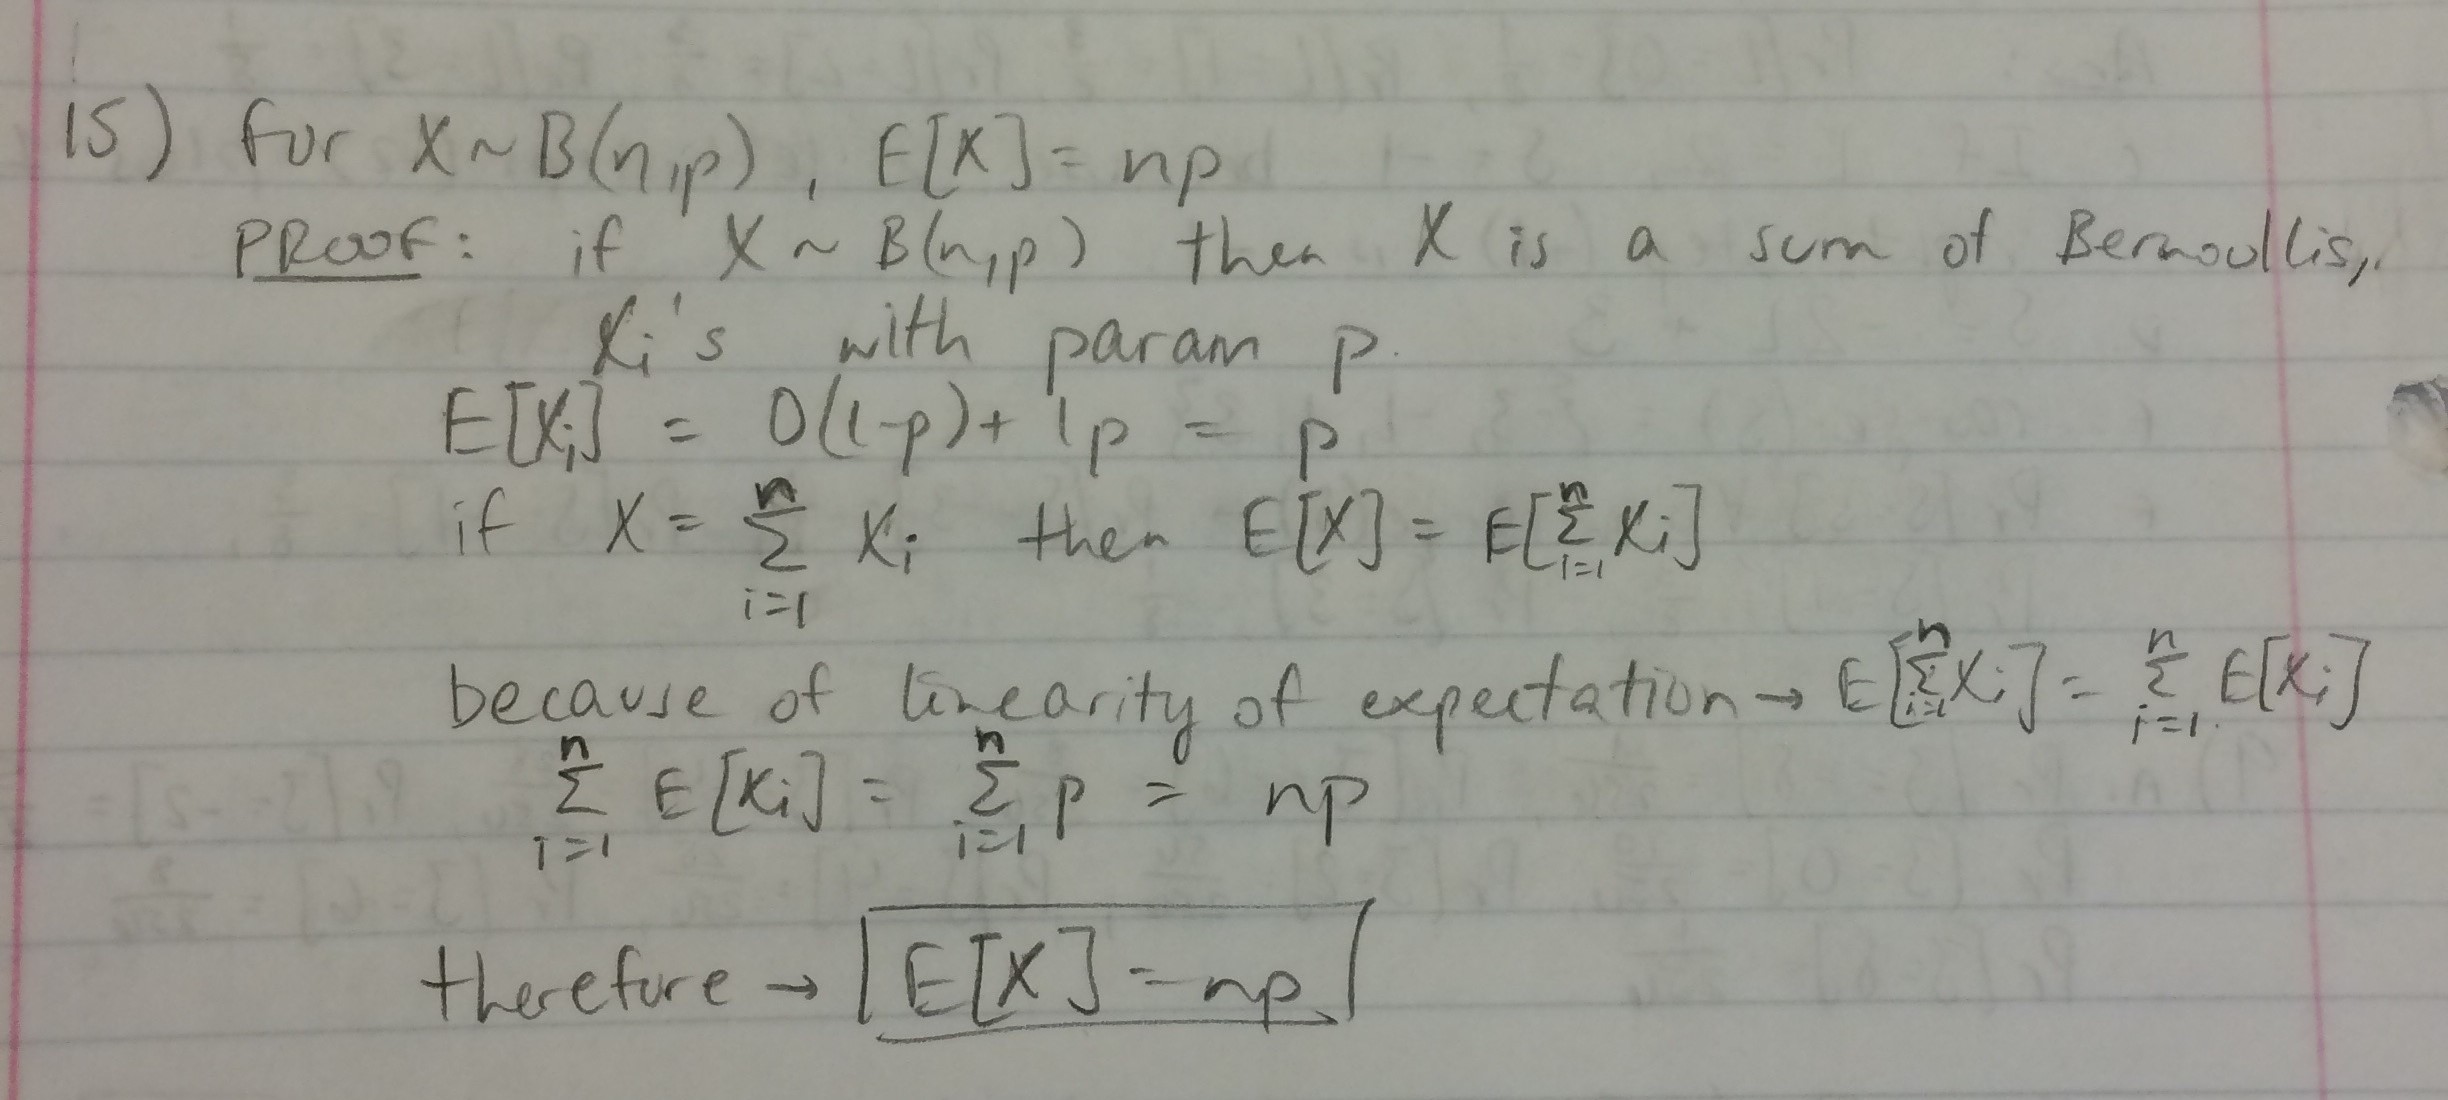 15) for X ~ B(n,p), E[X] = np
PROOF: if X ~ B(n,p) then X is a sum of Bernoullis,
Xi's with param p.
E[Xi] = 0(1-p) + 1p = p
if X = n∑i=1 Xi then E[X] = E[n∑i=1 Xi]
because of linearity of expectation → E[n∑i=1 Xi] = n∑i=1 E[Xi]
n∑i=1 E[Xi] = n∑i=1 p = np
therefore → E[X] = np